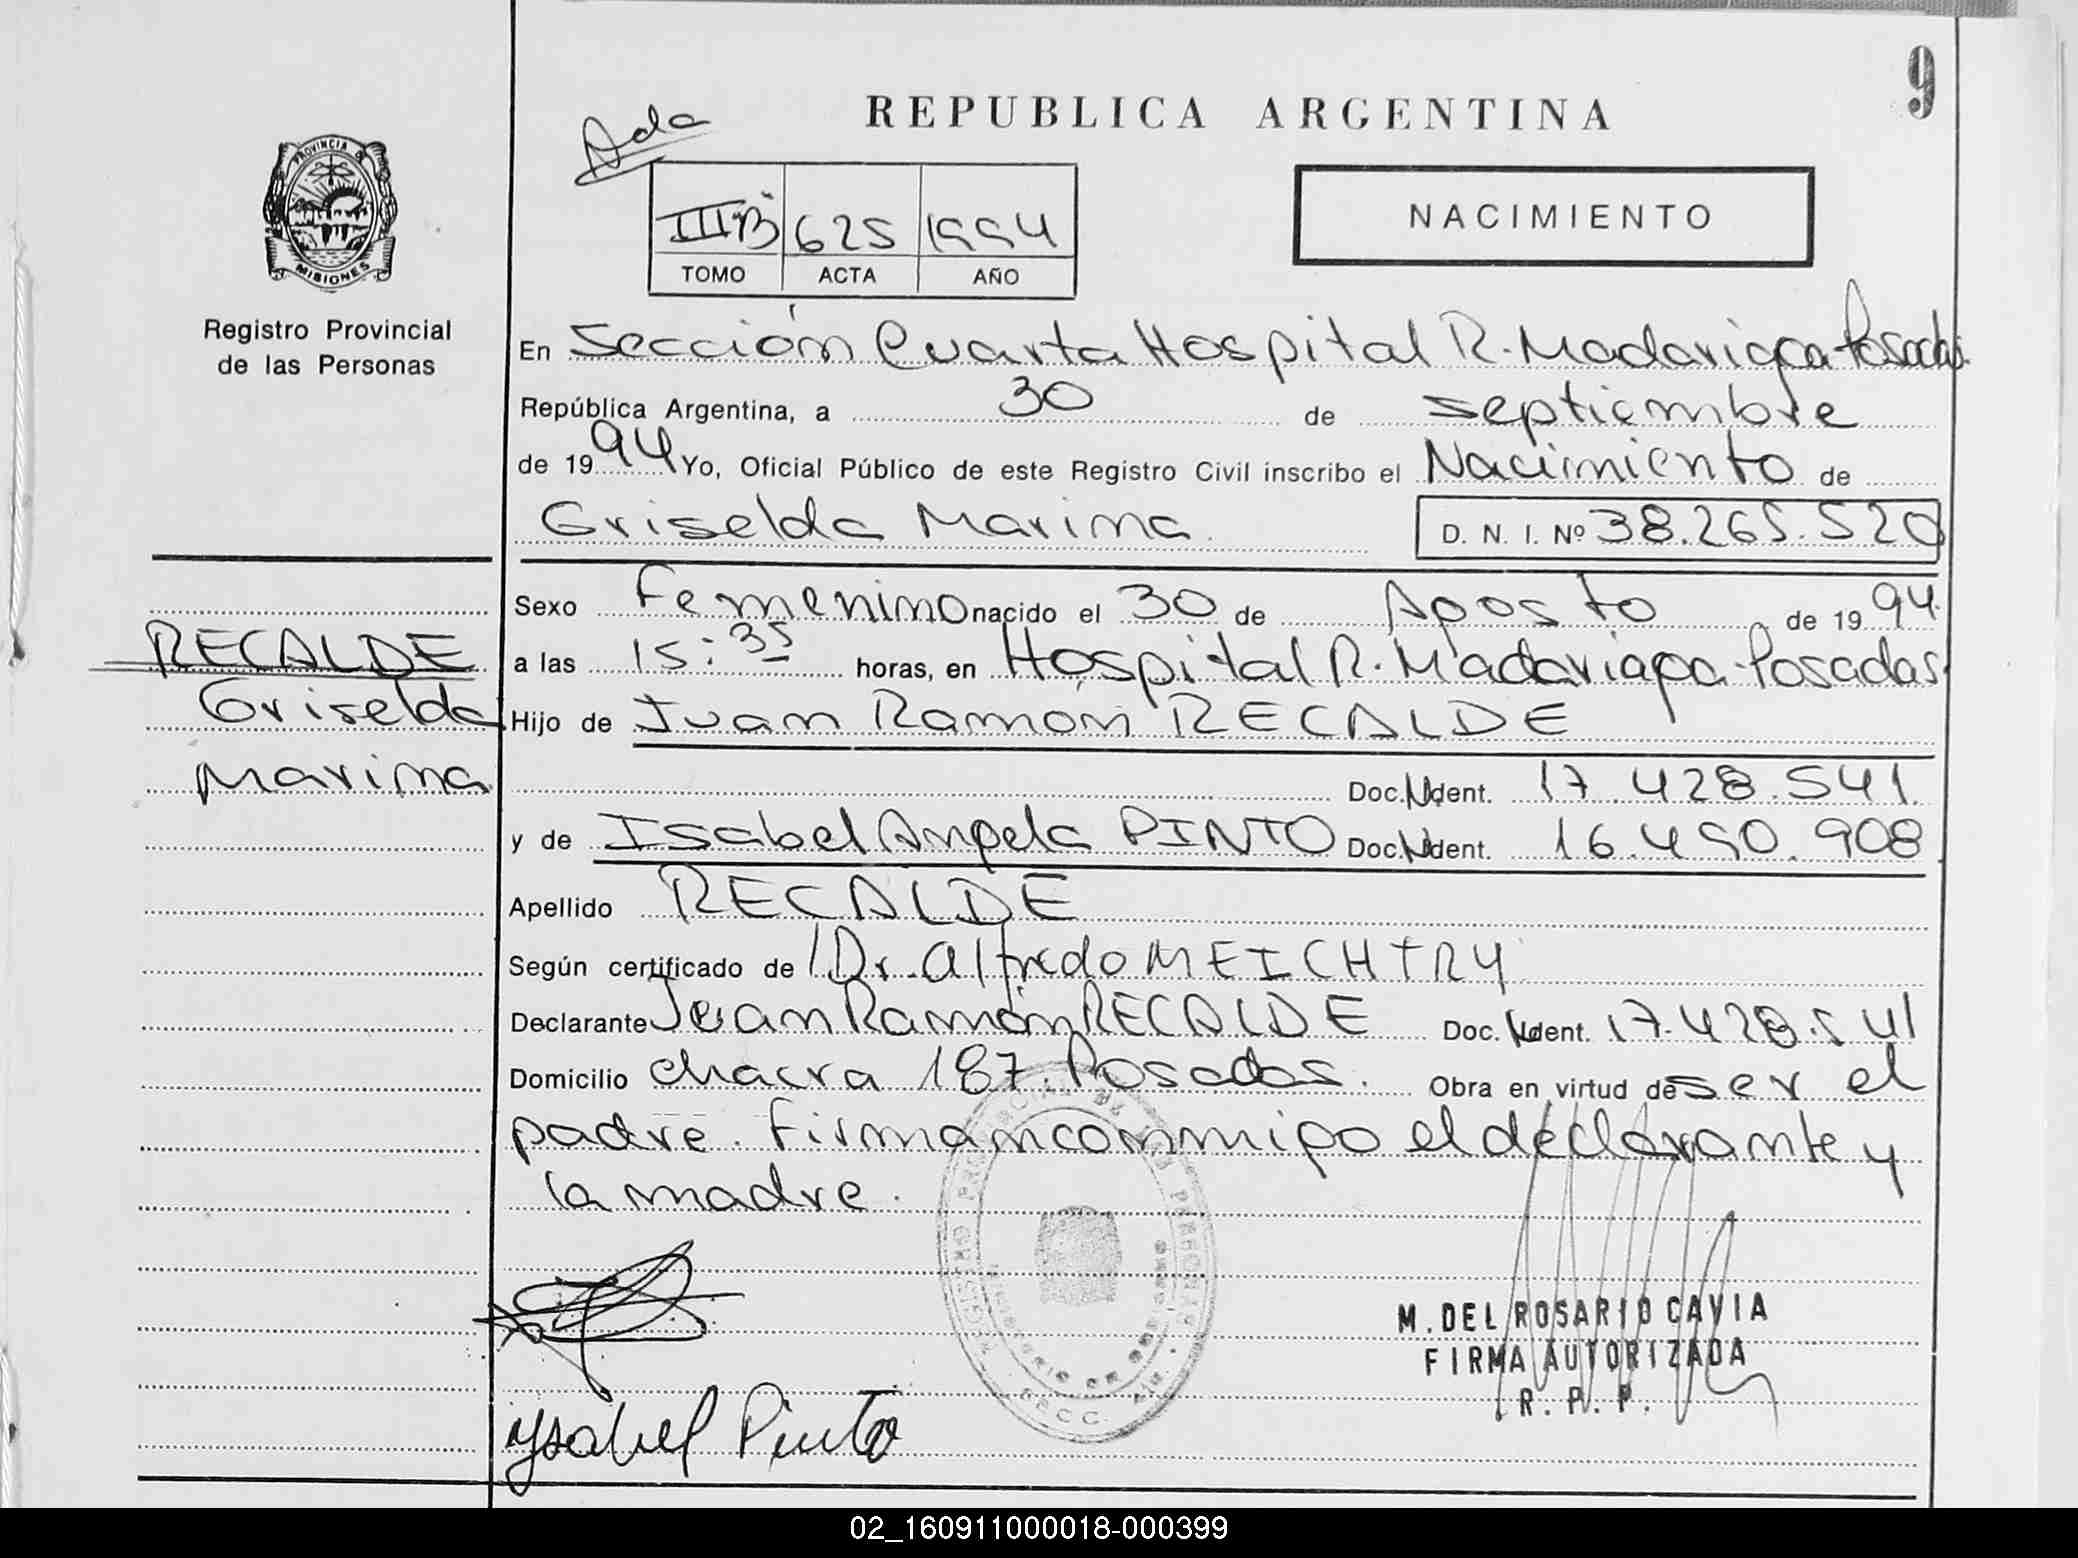 9
REPUBLICA ARGENTINA
Ada
PROVINCIA DE
MISIONES
III "B" 625 1994
TOMO ACTA AÑO
NACIMIENTO
Registro Provincial
de las Personas
En Sección Cuarta Hospital R. Madariaga Posadas.
República Argentina, a 30 de septiembre
de 1994 Yo, Oficial Público de este Registro Civil inscribo el Nacimiento de
Griselda Marina. D. N. I. Nº 38.265.520
Sexo Femenino nacido el 30 de Agosto de 1994.
RECALDE
Griselda
Marina
a las 15:35 horas, en Hospital R. Madariaga-Posadas.
Hijo de Juan Ramón RECALDE
Doc. Ident. 17.428.541.
y de Isabel Angela PINTO Doc. Ident. 16.490.908
Apellido RECALDE
Según certificado de Dr. Alfredo MEICHTRY
Declarante Juan Ramón RECALDE Doc. Ident. 17.428.541
Domicilio chacra 187. Posadas. Obra en virtud de ser el
padre. Firman conmigo el declarante y
la madre.
M. DEL ROSARIO CAVIA
FIRMA AUTORIZADA
R. P. P.
Ysabel Pinto
02_160911000018-000399